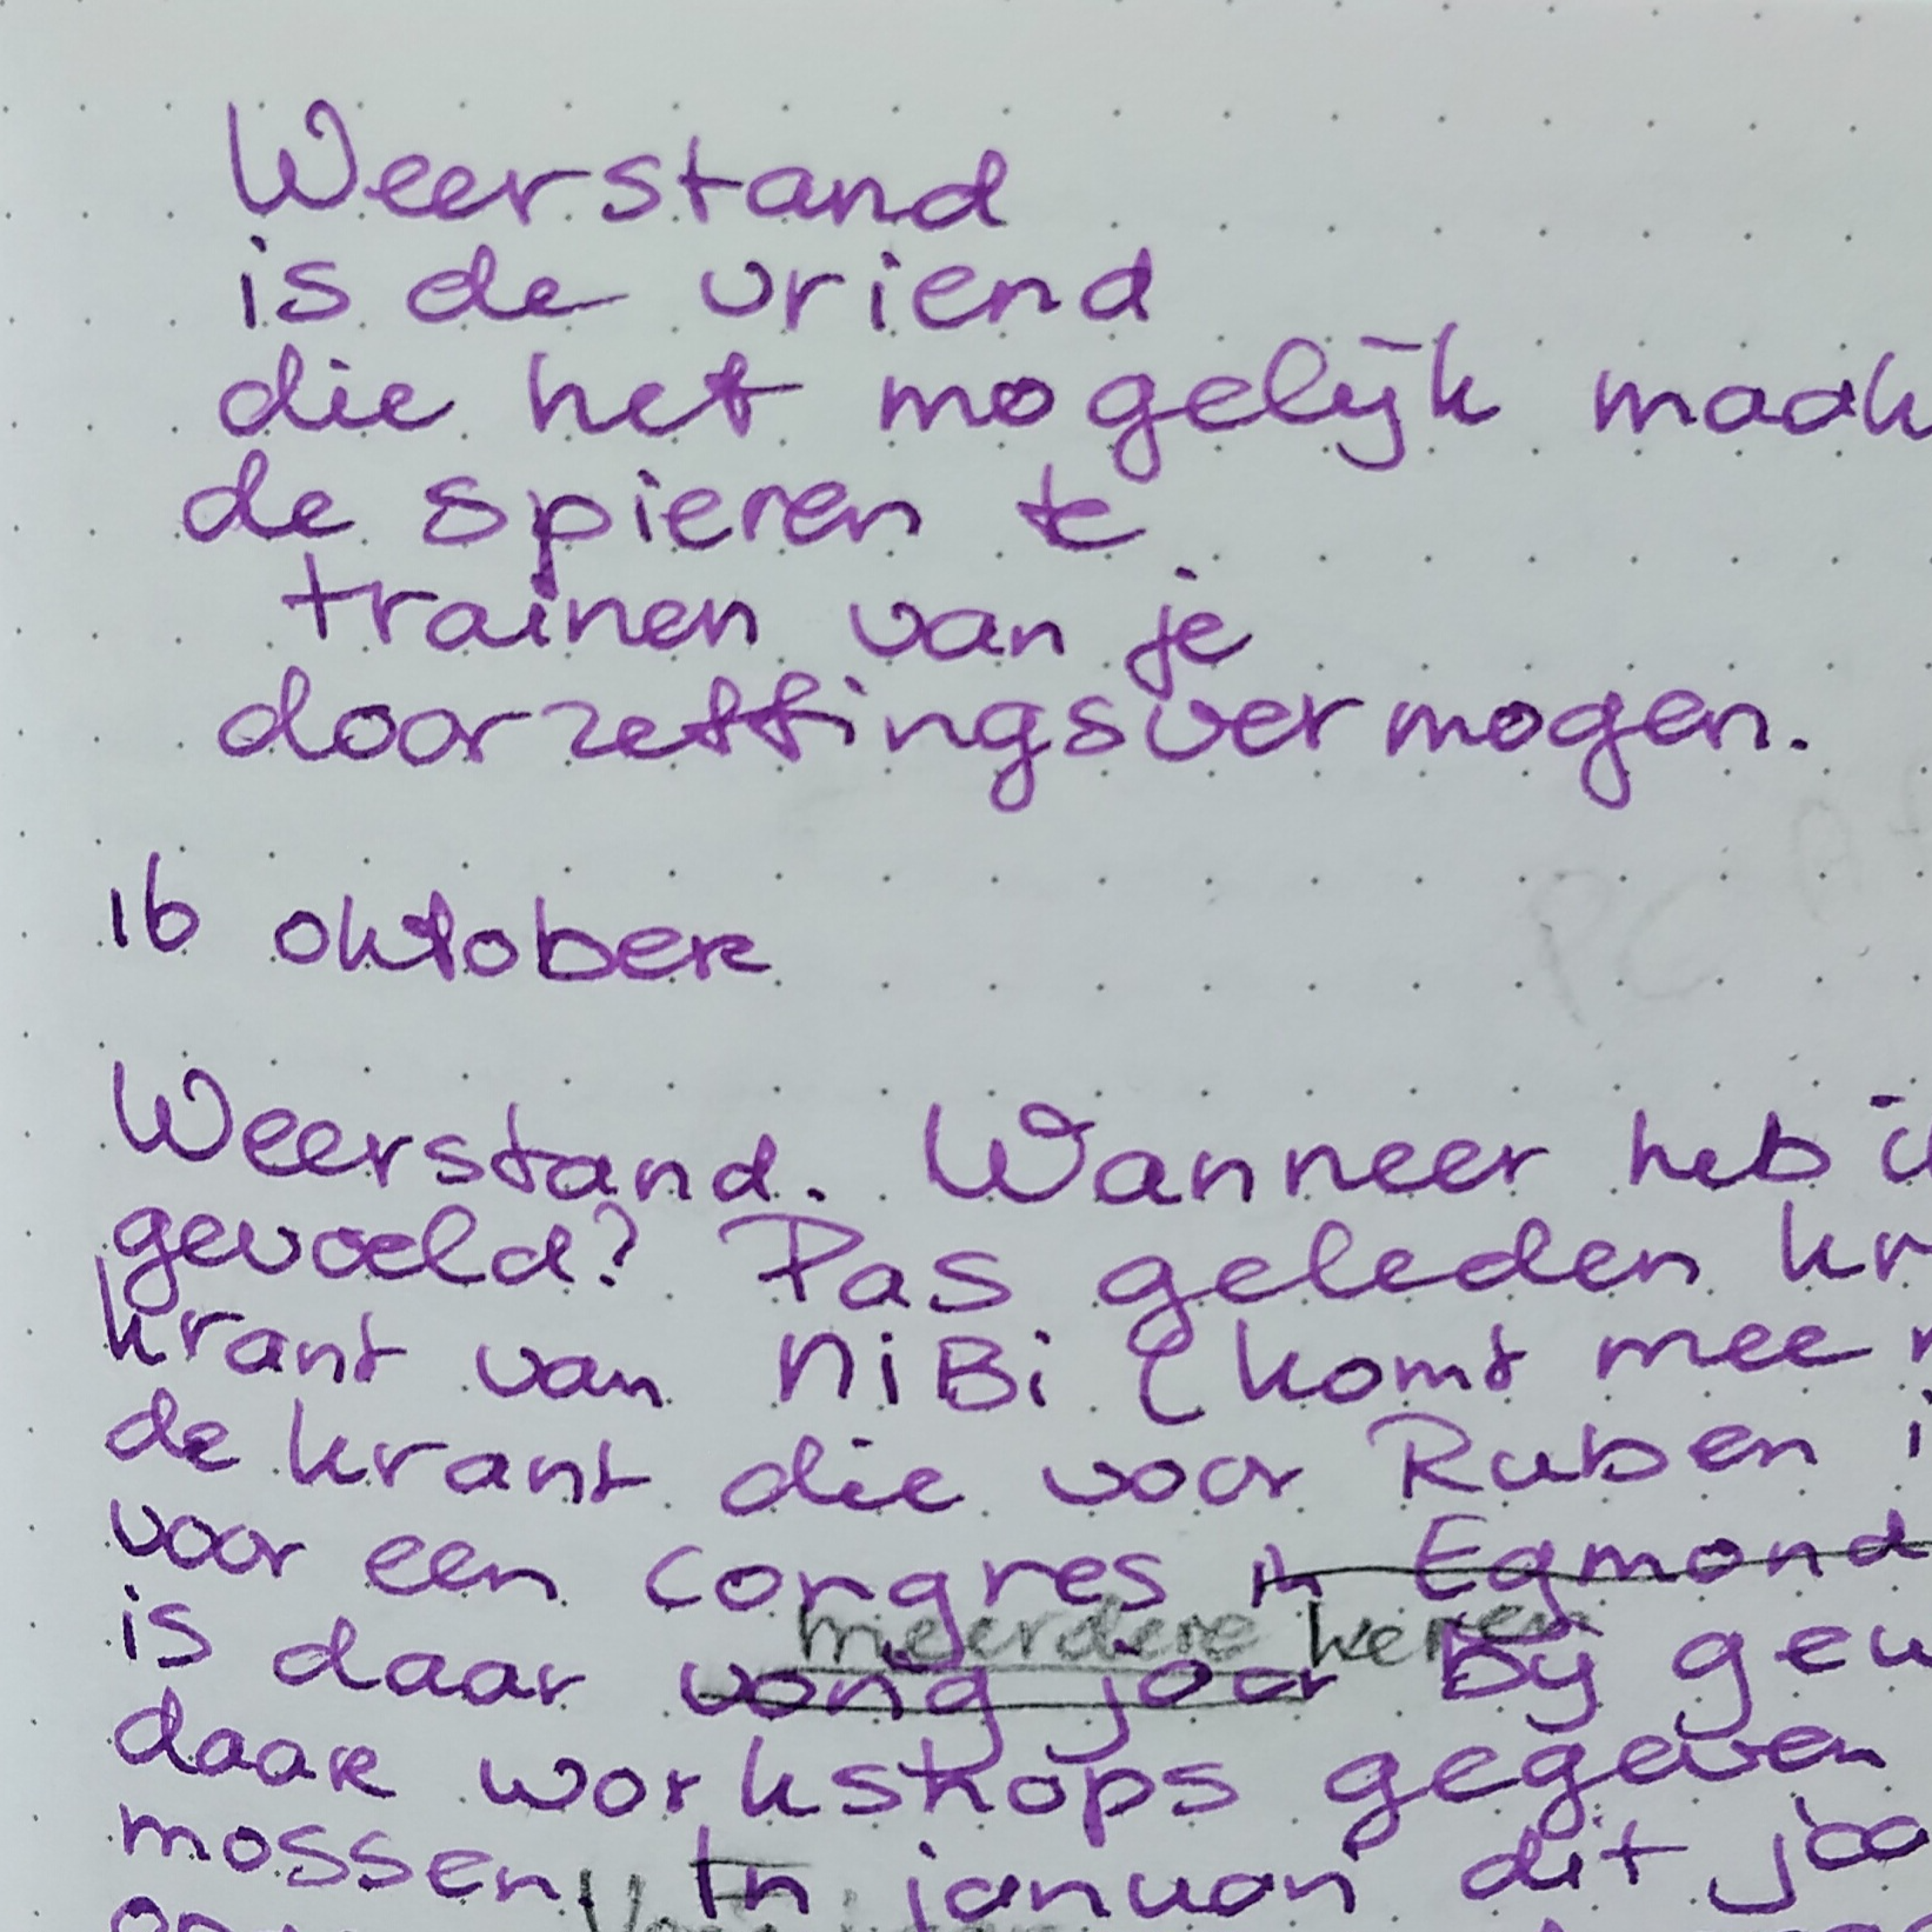 Weerstand
is de vriend
die het mogelijk maak
de spieren te
trainen van je
doorzettingsvermogen.
16 oktober
Weerstand. Wanneer heb ik
gevoeld? Pas geleden kr
krant van NiBi (komt mee
de krant die voor Ruben
voor een congres in Egmond
meerdere keren
is daar vorig jaar bij gew
daar workshops gegeven
mossen. In januari dit jaa
Vorig jaar